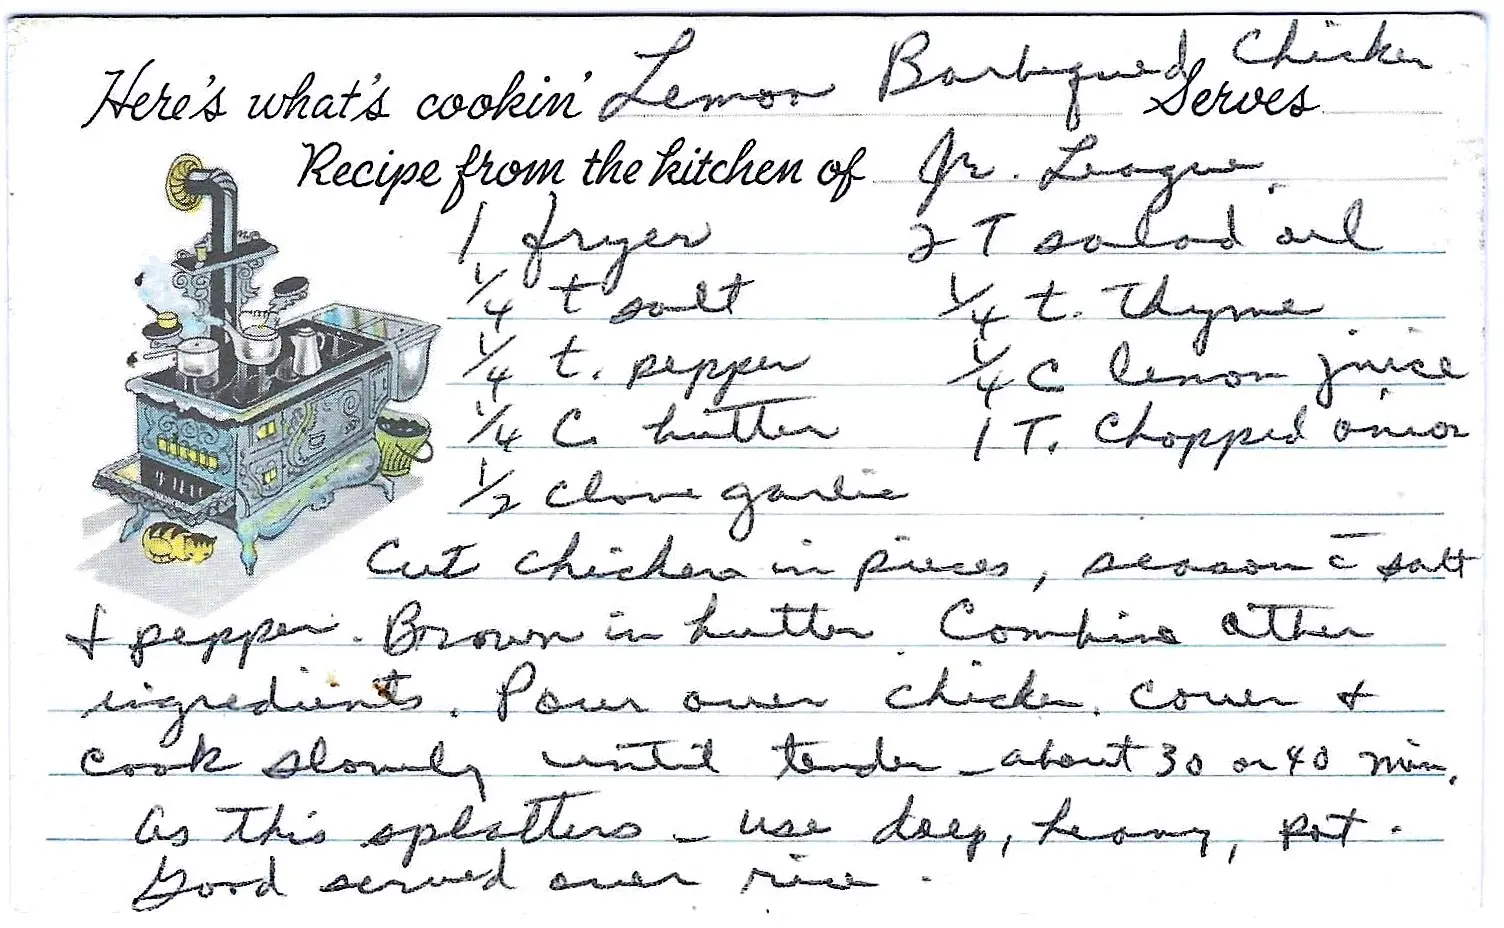 Here's what's cookin' Lemon Barbequed Chicken Serves
Recipe from the kitchen of Jr. League
1 fryer 2 T salad oil
1/4 t salt 1/4 t. Thyme
1/4 t. pepper 1/4 C lemon juice
1/4 C. butter 1 T. Chopped onion
1/2 clove garlic
Cut chicken in pieces, season c̄ salt
& pepper. Brown in butter Combine other
ingredients. Pour over chicken. Cover &
cook slowly until tender - about 30 or 40 min.
As this splatters - use deep, heavy, pot.
Good served over rice.